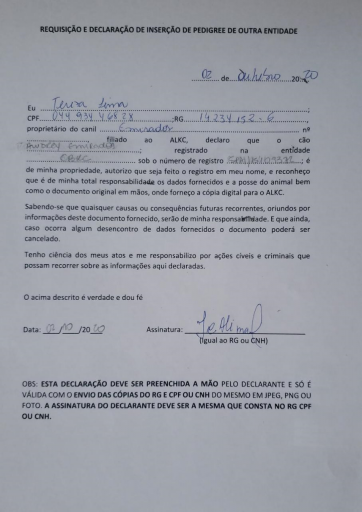 REQUISIÇÃO E DECLARAÇÃO DE INSERÇÃO DE PEDIGREE DE OUTRA ENTIDADE
02 de Outubro 2020
Eu Tereza Lima
CPF RG
proprietário do canil nº
filiado ao ALKC, declaro que o cão
registrado na entidade
sob o número de registro ; é
de minha propriedade, autorizo que seja feito o registro em meu nome, e reconheço
que é de minha total responsabilidade os dados fornecidos e a posse do animal bem
como o documento original em mãos, onde forneço a cópia digital para o ALKC.
Sabendo-se que quaisquer causas ou consequências futuras recorrentes, oriundos por
informações deste documento fornecido, serão de minha responsabilidade. E que ainda,
caso ocorra algum desencontro de dados fornecidos o documento poderá ser
cancelado.
Tenho ciência dos meus atos e me responsabilizo por ações cíveis e criminais que
possam recorrer sobre as informações aqui declaradas.
O acima descrito é verdade e dou fé
Data: 02/10/2020 Assinatura:
(Igual ao RG ou CNH)
OBS: ESTA DECLARAÇÃO DEVE SER PREENCHIDA A MÃO PELO DECLARANTE E SÓ É
VÁLIDA COM O ENVIO DAS CÓPIAS DO RG E CPF OU CNH DO MESMO EM JPEG, PNG OU
FOTO. A ASSINATURA DO DECLARANTE DEVE SER A MESMA QUE CONSTA NO RG CPF
OU CNH.